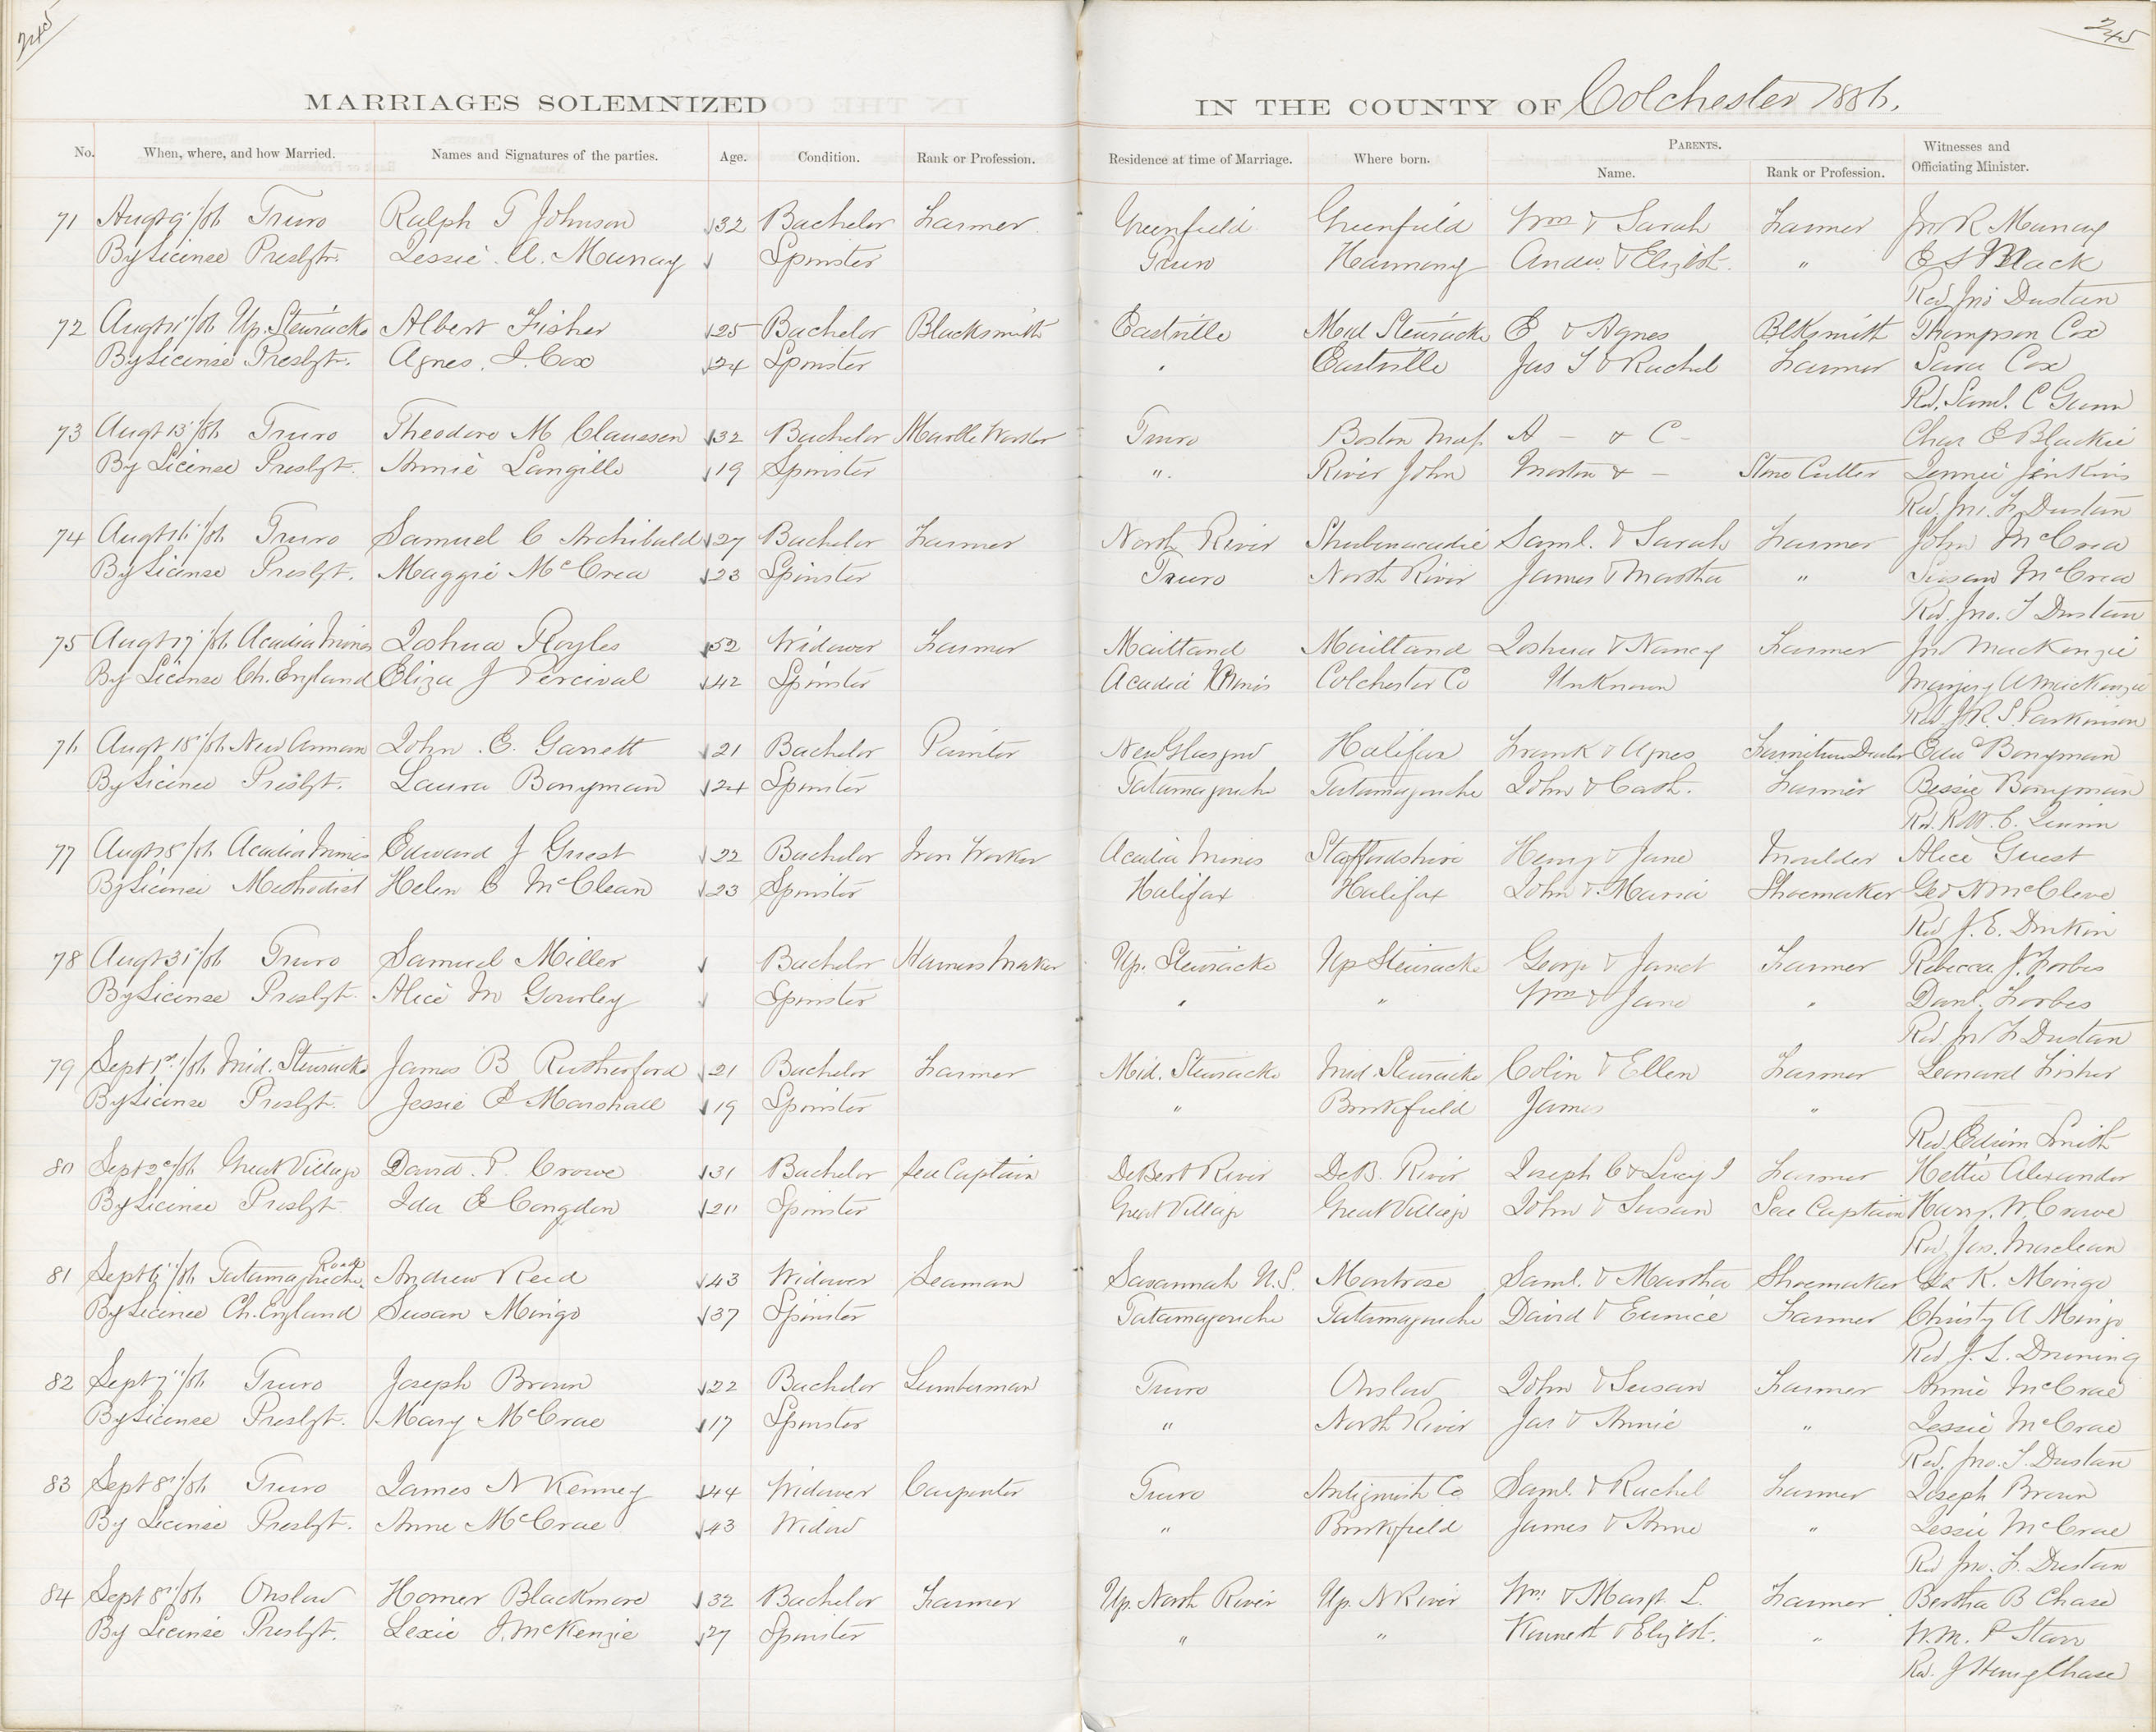 245
245
MARRIAGES SOLEMNIZED IN THE COUNTY OF Colchester 1886.
No. When, where, and how Married. Names and Signatures of the parties. Age. Condition. Rank or Profession. Residence at time of Marriage. Where born. PARENTS. Name. Rank or Profession. Witnesses and Officiating Minister.
71 Augt 9"/86 Truro Ralph T Johnson 32 Bachelor Farmer Greenfield Greenfield Wm & Sarah Farmer Jno R Murray
By License Presbt. Jessie A. Murray Spinster Truro Harmony Andw. & Elizbt. " E S Black
Rev Jno Dustan
72 Augt 11"/86 Up. Stewiacke Albert Fisher 25 Bachelor Blacksmith Eastville Mid Stewiacke E & Agnes Blksmith Thompson Cox
By License Presbt. Agnes J. Cox 24 Spinster " Eastville Jas T & Rachel Farmer Sara Cox
Rev. Saml. C Gunn
73 Augt 13"/86 Truro Theodore M Claussen 32 Bachelor Marble Worker Truro Boston Mass. A - & C - Chas E Blackie
By License Presbt. Annie Langille 19 Spinster " River John Martin & - Stone Cutter Jennie Jenkins
Rev. Jno. F. Dustan
74 Augt 16"/86 Truro Samuel C Archibald 27 Bachelor Farmer North River Shubenacadie Saml. & Sarah Farmer John McCrea
By License Presbt. Maggie McCrea 23 Spinster Truro North River James & Martha " Susan McCrea
Rev. Jno. F Dustan
75 Augt 17"/86 Acadia Mines Joshua Royles 52 Widower Farmer Maitland Maitland Joshua & Nancy Farmer Jno MacKenzie
By License Ch. England Eliza J Percival 42 Spinster Acadia Mines Colchester Co Unknown Marjory A MacKenzie
Rev. J.R.S. Parkinson
76 Augt 18"/86 New Annan John E. Garrett 21 Bachelor Painter New Glasgow Halifax Frank & Agnes Furniture Dealer Edw Bonyman
By License Presbt. Laura Bonyman 24 Spinster Tatamagouche Tatamagouche John & Cath. Farmer Bessie Bonyman
Rev.
77 Augt 28"/86 Acadia Mines Edward J Guest 22 Bachelor Iron Worker Acadia Mines Staffordshire Henry & Jane Moulder Alice Guest
By License Methodist Helen C McClean 23 Spinster Halifax Halifax John & Maria Shoemaker Geo McCleve
Rev J. E. Donkin
78 Augt 31"/86 Truro Samuel Miller Bachelor Harness Maker Up. Stewiacke Up Stewiacke George & Janet Farmer Rebecca J. Forbes
By License Presbt. Alice M Gourley Spinster " " Wm & Jane " Danl. Forbes
Rev Jno F Dustan
79 Sept 1st/86 Mid. Stewiacke James B Rutherford 21 Bachelor Farmer Mid. Stewiacke Mid. Stewiacke Colin & Ellen Farmer Leonard Fisher
By License Presbt. Jessie E Marshall 19 Spinster " Brookfield James " 
Rev Edwin Smith
80 Sept 2"/86 Great Village David. P. Crowe 31 Bachelor Sea Captain DeBert River DeB. River Joseph C & Lucy J Farmer Hettie Alexander
By License Presbt. Ida E Congdon 20 Spinster Great Village Great Village John & Susan Sea Captain Harry. W. Crowe
Rev. Jas. Maclean
81 Sept 6"/86 Tatamagouche Road Andrew Reid 43 Widower Seaman Savannah U.S. Montrose Saml. & Martha Shoemaker Geo K. Mingo
By License Ch. England Susan Mingo 37 Spinster Tatamagouche Tatamagouche David & Eunice Farmer Christy A Mingo
Rev J. L. Downing
82 Sept 7"/86 Truro Joseph Brown 22 Bachelor Lumberman Truro Onslow John & Susan Farmer Annie McCrae
By License Presbt. Mary McCrae 17 Spinster " North River Jas & Annie " Jessie McCrae
Rev. Jno. F. Dustan
83 Sept 8"/86 Truro James N Kenney 44 Widower Carpenter Truro Antigonish Co Saml. & Rachel Farmer Joseph Brown
By License Presbt. Anne McCrae 43 Widow " Brookfield James & Anne " Jessie McCrae
Rev Jno. F. Dustan
84 Sept 8"/86 Onslow Homer Blackmore 32 Bachelor Farmer Up. North River Up. N River Wm. & Margt. L. Farmer Bertha B Chase
By License Presbt. Lexie J. McKenzie 27 Spinster " " Kenneth & Elizbt. " W.M. P Starr
Rev. J Henry Chase